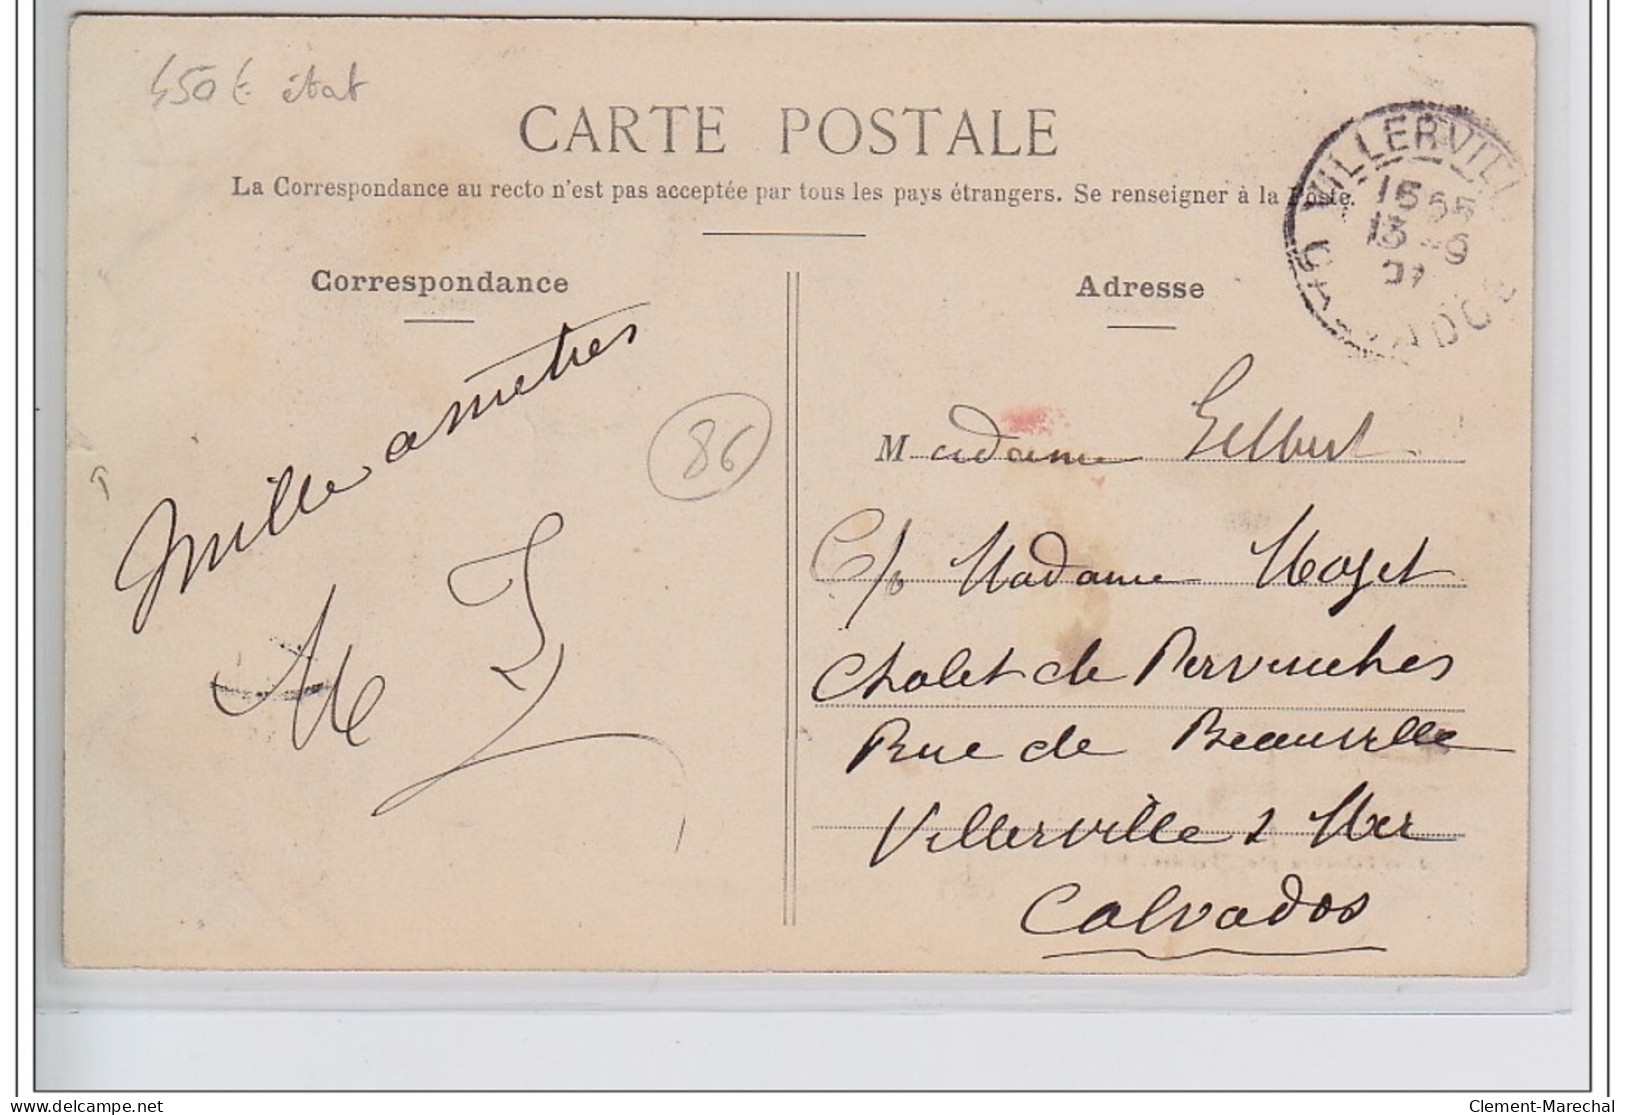 450 € état
CARTE POSTALE
La Correspondance au recto n'est pas acceptée par tous les pays étrangers. Se renseigner à la Poste.
VILLERVILLE
15 55
13 -9
07
CALVADOS
Correspondance
Mille amitiés
86
Adresse
Madame Gilbert
C/o Madame
Chalet de Pervenches
Rue de Beauville
Villerville s Mer
Calvados
Clement-Marechal
delcampe.net